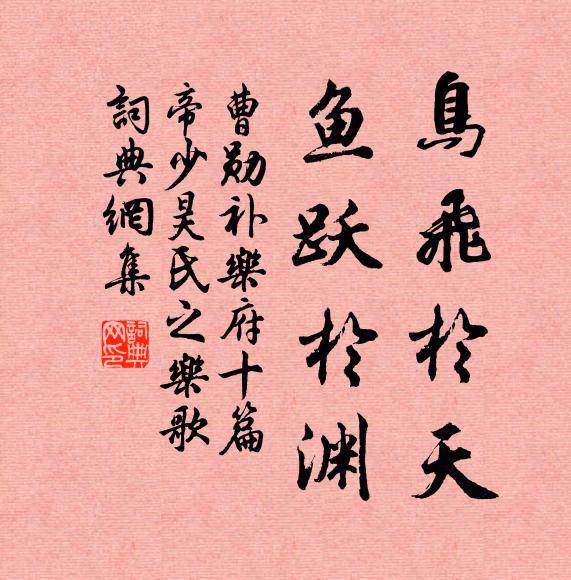 鳥飛於天
鱼跃於渊
曹勋补樂府十篇
帝少昊氏之樂歌
詞典網集
詞典网印